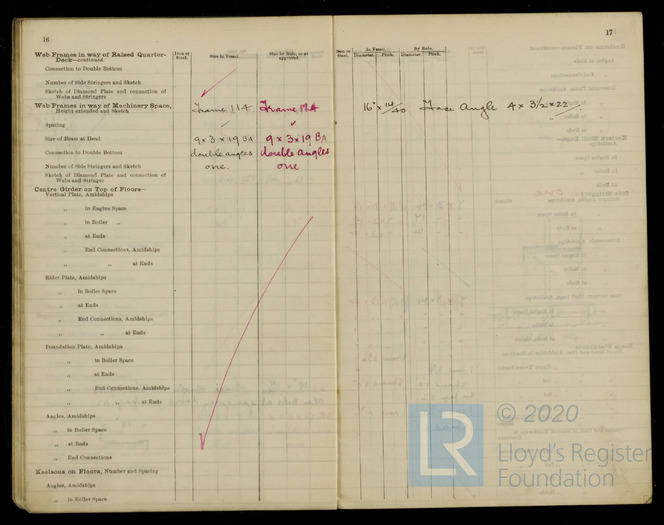 16
Web Frames in way of Raised Quarter-Deck—continued.
Iron or Steel.
Size in Vessel.
Size by Rule, or as approved.
Connection to Double Bottom
Number of Side Stringers and Sketch
Sketch of Diamond Plate and connection of Webs and Stringers
Web Frames in way of Machinery Space, Height extended and Sketch
Frame 114 Frame 124
Spacing
Size of Beam at Head 9 x 3 x 19 BA 9 x 3 x 19 BA
Connection to Double Bottom double angles double angles
Number of Side Stringers and Sketch one. one
Sketch of Diamond Plate and connection of Webs and Stringer
Centre Girder on Top of Floors—
Vertical Plate, Amidships
„ in Engine Space
„ in Boiler „
„ at Ends
„ End Connections, Amidships
„ „ at Ends
Rider Plate, Amidships
„ in Boiler Space
„ at Ends
„ End Connections, Amidships
„ „ at Ends
Foundation Plate, Amidships
„ in Boiler Space
„ at Ends
„ End Connections, Amidships
„ „ at Ends
Angles, Amidships
„ in Boiler Space
„ at Ends
„ End Connections
Keelsons on Floors, Number and Spacing
Angles, Amidships
„ in Boiler Space
17
Iron or Steel.
In Vessel.
By Rule.
Diameter. Pitch. Diameter. Pitch.
16" x 14/40 Face Angle 4 x 3 1/2 x 22
© 2020
LR
Lloyd's Register
Foundation